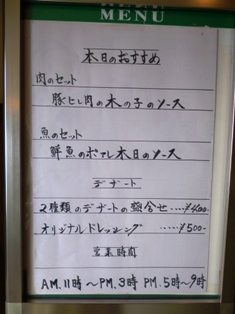 MENU
本日のおすすめ
肉のセット
豚ヒレ肉の木の子のソース
魚のセット
鮮魚のポアレ本日のソース
デザート
2種類のデザートの盛合せ.....¥400-
オリジナルドレッシング.....¥500-
営業時間
AM.11時〜PM.3時 PM.5時〜9時